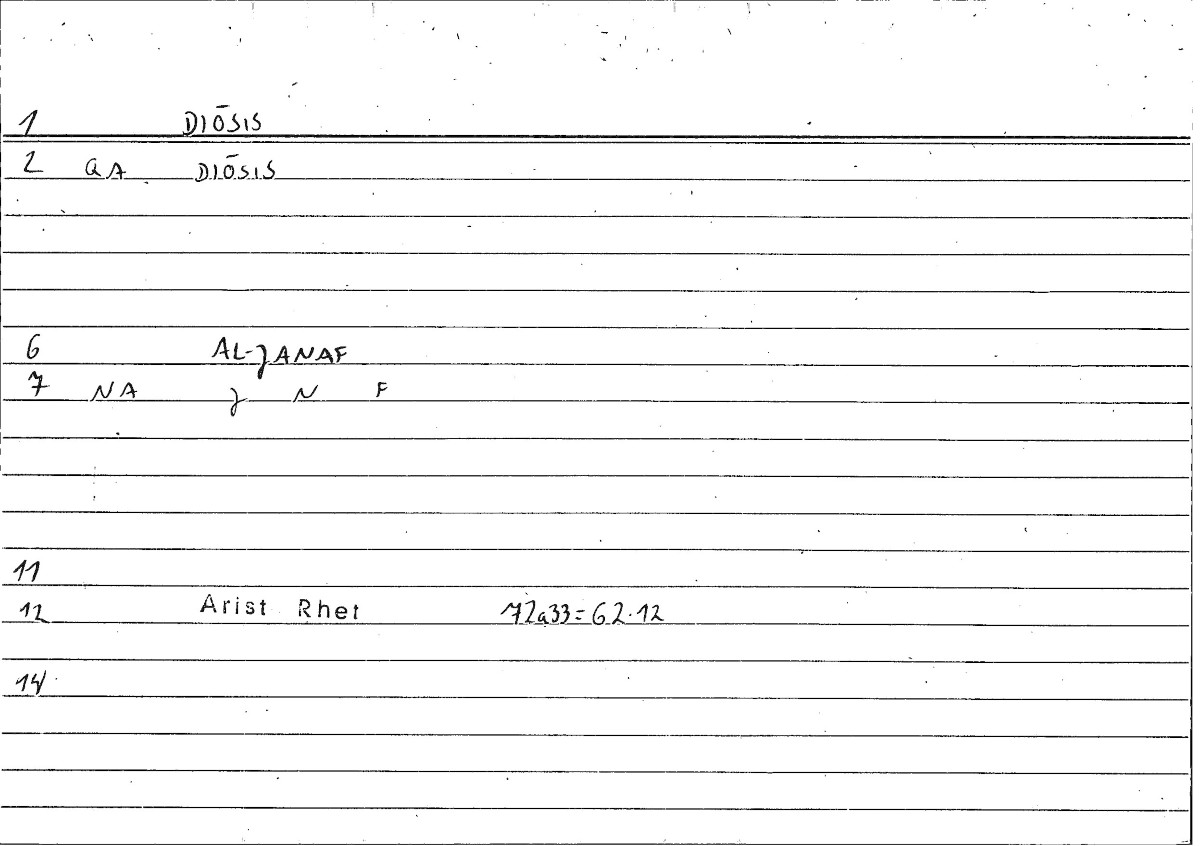 1 DIŌSIS
2 QA DIŌSIS
6 AL-ʒANAF
7 NA ʒ N F
11
12 Arist Rhet 72a33=62.12
14